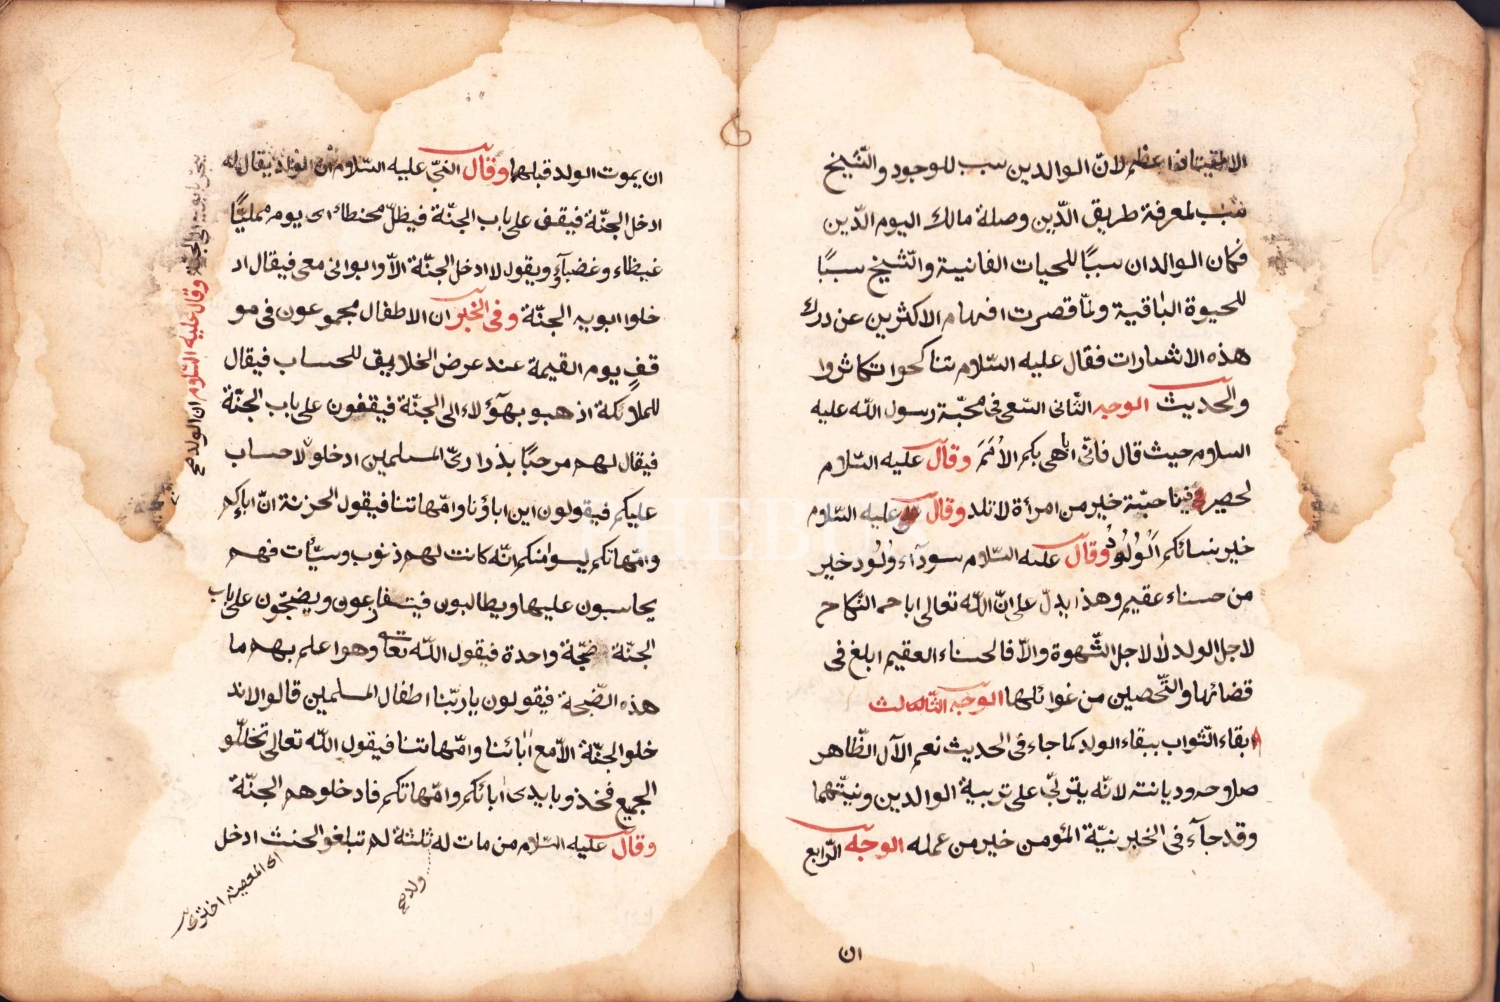 لانّ الوالدين سبب للوجود والشّيخ
سبب لمعرفة طريق الدّين وصلة مالك اليوم الدّين
فكان الوالدان سببًا للحيات الفانية والشّيخ سببًا
للحيوة الباقية ولمّا قصرت افهام الاكثرين عن درك
هذه الاشارات فقال عليه السّلام تناكحوا تكاثروا
والحديث الوجه الثّانى السّعى فى محبّة رسول اللّه عليه
السلام حيث قال فانّى اباهى بكم الاُمَمَ وقال عليه السّلام
لحصير فى خير من امرأة لا تلد وقال عليه السّلام
خير نسائكم الَولُودُ وقال عليه السّلام سودآء ولُود خير
من حسناء عقيم وهذا يدلّ على انّ اللّه تعالى اباح النّكاح
لاجل الولد لا لاجل الشّهوة والاّ فالحسناء العقيم ابلغ فى
قضائها والتّحصين من غوائلها الوجه الثّالث
ابقاء الثّواب ببقاء الولد كما جاء فى الحديث نعم الآل الظّاهر
صلاحه وديانته لانّه يتربّى على تربية الوالدين ونيّتهما
وقد جآء فى الخبر نيّة المؤمن خير من عمله الوجه الرّابع
ان
ان يموت الولد قبلها وقال النّبىّ عليه السّلام ان الولد يقال له
ادخل الجنّة فيقف على باب الجنّة فيظلّ محنطاء اى يومه ممليًّا
غيظاء وغضبآء ويقول لا ادخل الجنّة الاّ وابوانى معى فيقال اد
خلوا ابويه الجنّة وفى الخبر ان الاطفال مجموعون فى مو
قف يوم القيمة عند عرض الخلايق للحساب فيقال
للملائكة اذهبو بهؤلاء الى الجنّة فيقفون على باب الجنّة
فيقال لهم مرحبًا بذرارىّ المسلمين ادخلو لا حساب
عليكم فيقولون اين اباؤنا وامّهاتنا فيقول الخزنة انّ اباءكم
وامّهاتكم ليسوا منكم انّه كانت لهم ذنوب وسيّأت فهم
يحاسبون عليها ويطالبون ويضجّون على باب
الجنّة ضجّة واحدة فيقول اللّه تعا وهو اعلم بهم ما
هذه الضّجة فيقولون يا ربّنا اطفال المسلمين قالوا لا ند
خلو الجنّة الاّ مع ابائنا وامّهاتنا فيقول اللّه تعالى تخلّلو
الجمع فخذو بايدى ابائكم وامّهاتكم فادخلوهم الجنّة
وقال عليه السّلام من مات له ثلثة لم تبلغو الحنث ادخل
اى المعصية
ولد صح
الى الجنّة وقال عليه السّلام ان الولد صح